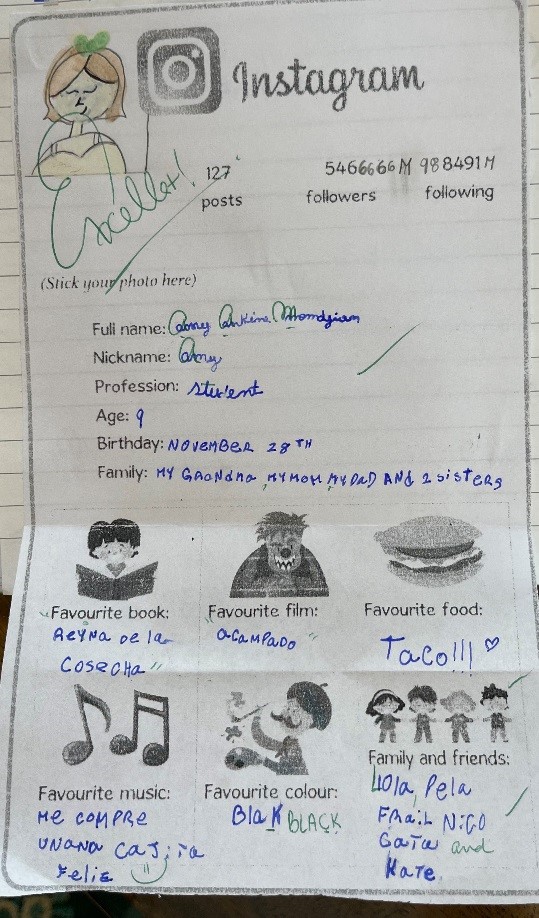 Instagram
Excellent!
127 5466666M 988491M
posts followers following
(Stick your photo here)
Full name: Amy Ankine
Nickname: Amy
Profession: student
Age: 9
Birthday: NOVEMBER 28TH
Family: MY GRANDMA, MY MOM, MY DAD AND 2 SISTERS
"Favourite book:
REYNA DE LA
COSECHA"
"Favourite film:
ACAMPADO"
Favourite food:
TaCO!!! ♡
Favourite music:
ME COMPRE
UNANA CAJITA
FELIZ
Favourite colour:
Blak BLACK
Family and friends:
LOla, Pela
FRAIL NICO
GATA and
KATE.